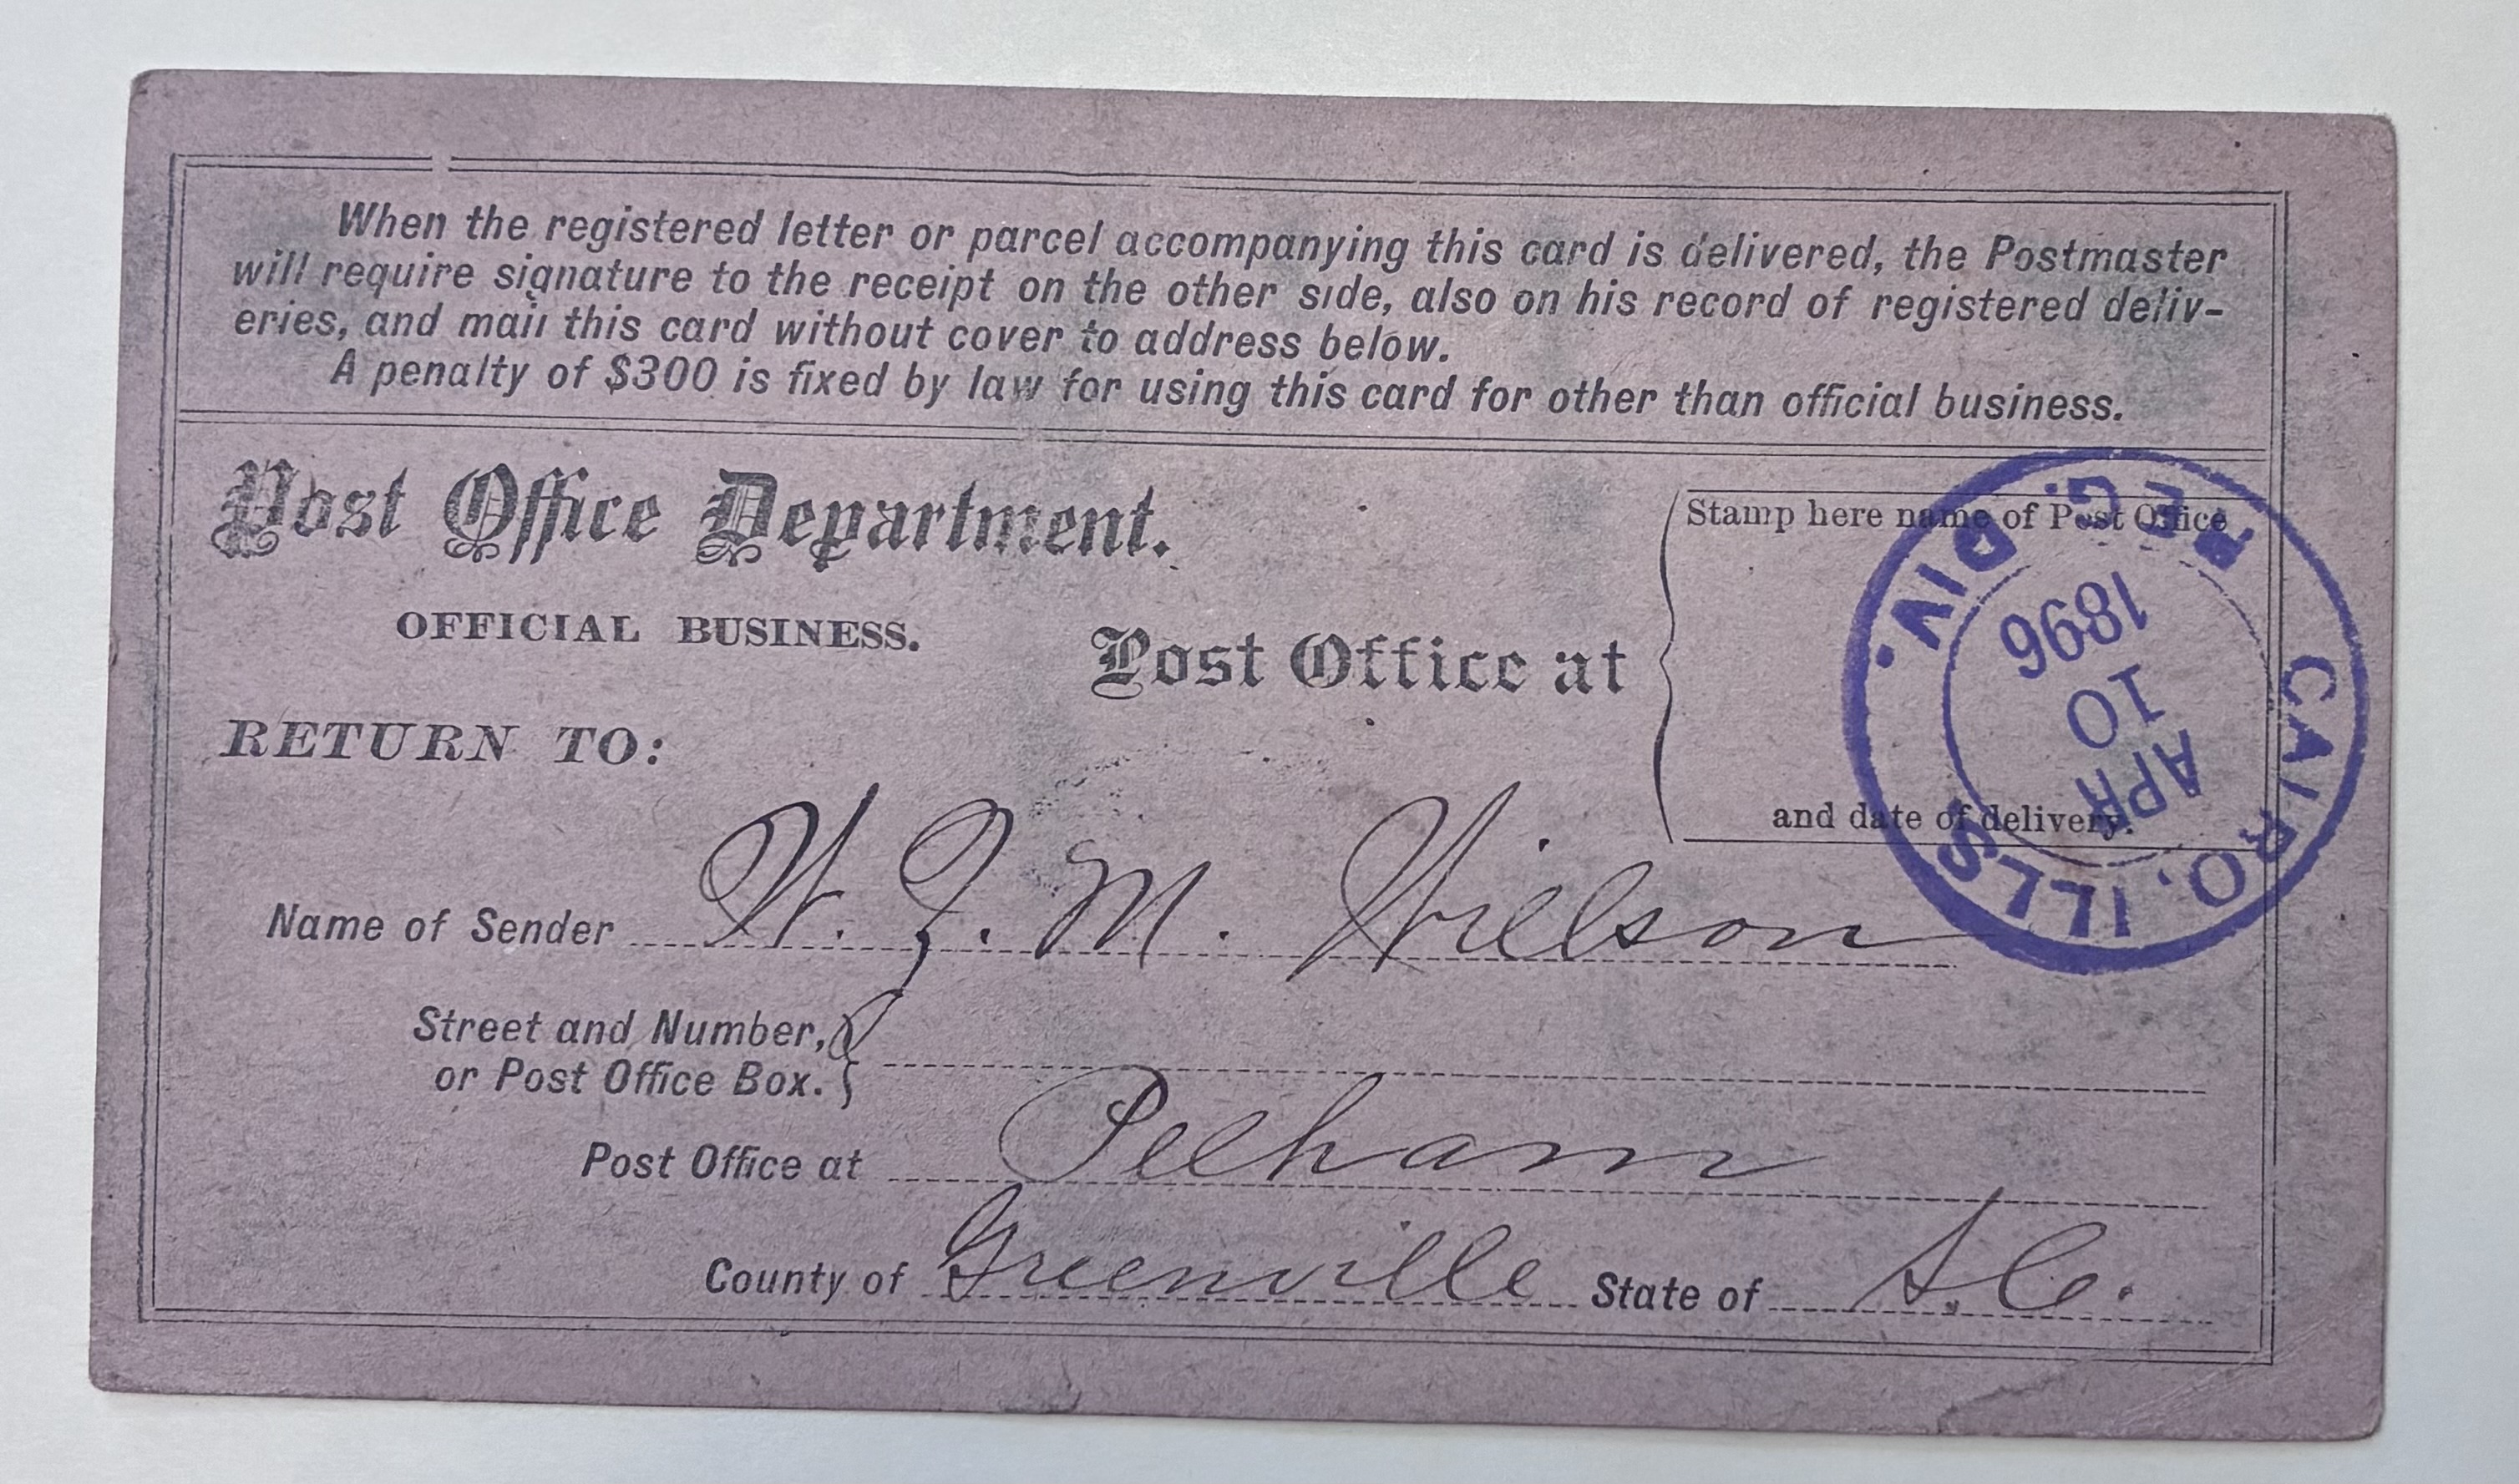 When the registered letter or parcel accompanying this card is delivered, the Postmaster
will require signature to the receipt on the other side, also on his record of registered deliv-
eries, and mail this card without cover to address below.
A penalty of $300 is fixed by law for using this card for other than official business.
Post Office Department.
OFFICIAL BUSINESS.
Post Office at
Stamp here name of Post Office
and date of delivery.
CAIRO, ILLS
REG. DIV.
APR
10
1896
RETURN TO:
Name of Sender W. J. M. Willson
Street and Number,
or Post Office Box.
Post Office at Pelham
County of Greenville State of S.C.